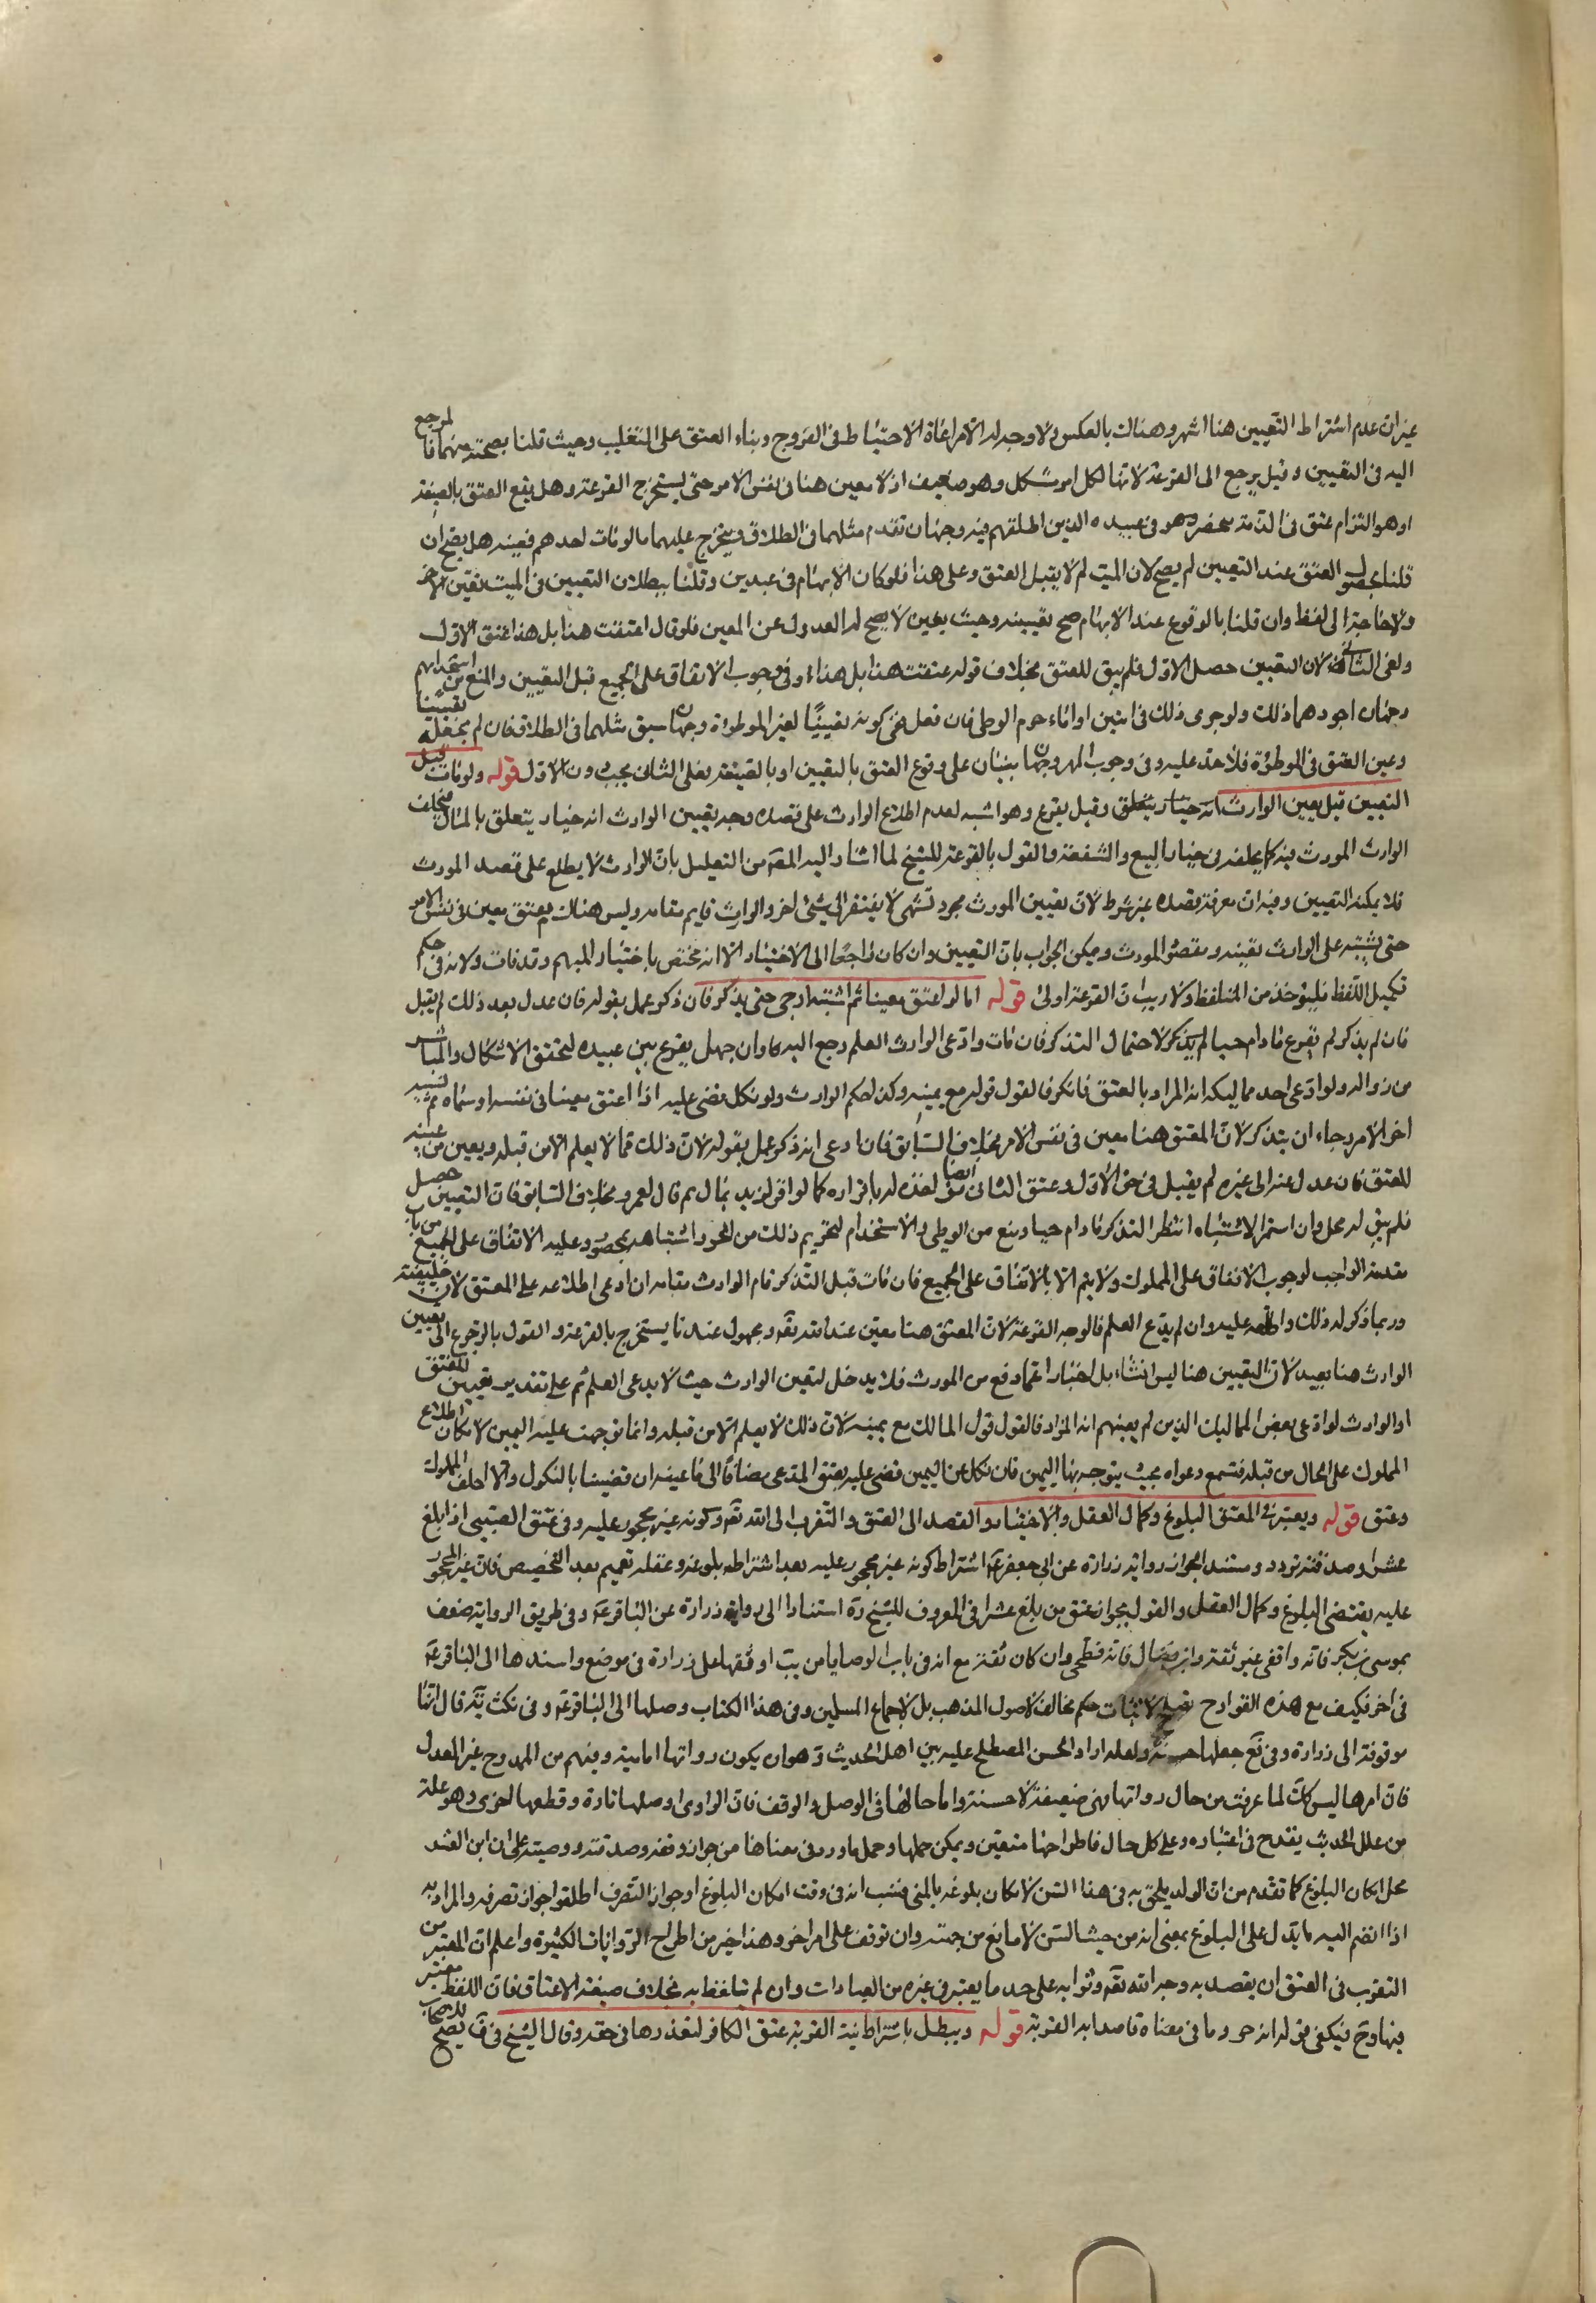 غير ان عدم اشتراط التعيين هنا اشهر وهناك بالعكس ولا وجه له الا مراعاة الاحتياط فى الفروج وبناء العتق على التغليب وحيث قلنا بصحته مبهما فالمرجع
اليه فى التعيين وقيل يرجع الى القرعة لانها لكل امر مشكل وهو ضعيف اذ لا معين هنا فى نفس الامر حتى يستخرج القرعة وهل يقع العتق بالصيغة
او هو التزام عتق فى الذمة عبيده الذين اطلقهم فيه وجهان تقدم مثلهما فى الطلاق ويتخرج عليهما ما لو مات احدهم فعينه هل يصح ان
قلنا بحصول العتق عند التعيين لم يصح لان الميت لا يقبل العتق وعلى هذا فلو كان الابهام فى عبدين وقلنا ببطلان التعيين فى الميت تعين الاخر
ولا حاجة الى لفظ وان قلنا بالوقوع عند الابهام صح تعيينه وحيث يعين لا يصح له العدول عن المعين فلو قال اعتقت هذا بل هذا عتق الاول
ولغى الثانى لان التعيين حصل الاول فلم يبق للعتق بخلاف قوله عتقت هذا بل هذا وفى وجوب الانفاق على الجميع قبل التعيين والمنع من استخدامهم
وجهان اجودهما ذلك ولو جرى ذلك فى امتين او اماء حرم الوطى فان فعل ففى كونه تعيينًا لغير الموطوءة وجهان سبق مثلهما فى الطلاق فان لم نجعله تعيينا
وعين العتق فى الموطوءة فلا حد عليه وفى وجوب المهر وجهان يبنيان على وقوع العتق بالتعيين او بالصيغة فعلى الثانى يجب دون الاول قوله ولو مات قبل
التعيين قيل يعين الوارث وقيل يقرع وهو اشبه لعدم اطلاع الوارث على قصده وجه تعيين الوارث انه خيار يتعلق بالمال فيخلف
الوارث المورث فيه كما يخلفه فى خيار البيع والشفعة والقول بالقرعة للشيخ لما اشار اليه المص من التعليل بان الوارث لا يطلع على قصد المورث
فلا يمكنه التعيين وفيه ان معرفة قصده غير شرط لان تعيين المورث مجرد تشهى لا يفتقر الى شئ اخر والوارث قايم مقامه وليس هناك معتق معين فى نفس الامر
حتى يشتبه على الوارث تعيينه ومقصود المورث ويمكن الجواب بان التعيين وان كان راجعا الى الاختيار الا انه مختص باختيار المبهم وقد فات ولانه فى حكم
تكميل اللفظ فليؤخذ من المتلفظ ولا ريب ان القرعة اولى قوله اما لو اعتق معينا ثم اشتبه ارجى حتى يذكر فان ذكر عمل بقوله فان عدل بعد ذلك لم يقبل
فان لم يذكر لم يقرع ما دام حيا لاحتمال التذكر فان مات وادعى الوارث العلم رجع اليه وان جهل يقرع بين عبيده لتحقق الاشكال والياس
من زواله ولو ادعى احد مماليكه انه المراد بالعتق فانكر فالقول قوله مع يمينه وكذا حكم الوارث ولو نكل قضى عليه اذا اعتق معينا فى نفسه او سماه ثم نسيه
اخر الامر رجاء ان يتذكر لان المعتق هنا معين فى نفس الامر بخلاف السابق فان ادعى انه ذكر عمل بقوله لان ذلك مما لا يعلم الا من قبله ويعين من عينه
للعتق فان عدل عنه الى غيره لم يقبل فى حق الاول وعتق الثانى ايضا لنفوذه له باقراره كما لو اقر لزيد بمال ثم قال لعمرو بخلاف السابق فان التعيين حصل
فلم يبق له محل وان استمر الاشتباه انتظر التذكر ما دام حيا ومنع من الوطى والاستخدام لتحريم ذلك من الحر واشتباهه بمحصور وعليه الانفاق على الجميع من باب
مقدمة الواجب لوجوب الانفاق على المملوك ولا يتم الا بالانفاق على الجميع فان مات قبل التذكر قام الوارث مقامه ان ادعى اطلاعه على المعتق لانه خليفته
وربما ذكر له ذلك واطلعه عليه وان لم يدع العلم فالوجه القرعة لان المعتق هنا معين عند الله تعه ومجهول عندنا يستخرج بالقرعة والقول بالرجوع الى تعيين
الوارث هنا بعيد لان التعيين هنا ليس انشاء بل اخبارا عما وقع من المورث فلا يدخل لتعين الوارث حيث لا يدعى العلم ثم على تقدير تعيين المعتق
او الوارث لو ادعى بعض المماليك الذين لم يعينهم انه المراد فالقول قول المالك مع يمينه لان ذلك لا يعلم الا من قبله وانما توجهت عليه اليمين لامكان اطلاع
المملوك على الحال من قبله فتسمع دعواه بحيث يتوجه بها اليمين فان نكل عن اليمين قضى عليه بعتق المدعى مضافًا الى ما عينه ان قضينا بالنكول والا احلف المملوك
وعتق قوله ويعتبر فى المعتق البلوغ وكمال العقل والاختيار والقصد الى العتق والتقرب الى الله تعه وكونه غير محجور عليه وفى عتق الصبى اذا بلغ
عشرا وصدقته تردد ومستند الجواز رواية زرارة عن ابى جعفر ع اشتراط كونه غير محجور عليه بعد اشتراط بلوغه وعقله تعميم بعد التخصيص فان غير المحجور
عليه يقتضى البلوغ وكمال العقل والقول بجواز عتق من بلغ عشرا فى المعروف للشيخ ره استنادا الى رواية زرارة عن الباقر ع وفى طريق الرواية ضعف
بموسى بن بكر فانه واقفى غير ثقة وابن فضال فانه فطحى وان كان ثقة مع انه فى باب الوصايا من يب اوقفها على زرارة فى موضع واسندها الى الباقر ع
فى اخر فكيف مع هذه القوادح تصلح لاثبات حكم مخالف لاصول المذهب بل لاجماع المسلمين وفى هذا الكتاب وصلها الى الباقر ع وفى نكت ية قال انها
موقوفة الى زرارة وفى فع جعلها حسنة ولعله اراد الحسن المصطلح عليه بين اهل الحديث وهو ان يكون رواتها امامية وفيهم من الممدوح غير المعدل
فان امرها ليس كك لما عرفت من حال رواتها فهى ضعيفة لا حسنة واما حالها فى الوصل والوقف فان الراوى اوصلها تارة وقطعها اخرى وهو علة
من علل الحديث يقدح فى اعتباره وعلى كل حال فاطراحها متعين ويمكن حملها وحمل ما ورد فى معناها من جواز وقفه وصدقته ووصيته على ان ابن العشر
محل امكان البلوغ كما تقدم من ان الولد يلحق به فى هذا السن لامكان بلوغه بالمنى فنسب انه فى وقت امكان البلوغ او جواز التصرف اطلقوا جواز تصرفه والمراد به
اذا انضم اليه ما يدل على البلوغ بمعنى انه من حيث السن لا مانع من جهته وان توقف على امر اخر وهذا خير من اطراح الروايات الكثيرة واعلم ان المعتبر من
التقرب فى العتق ان يقصد به وجه الله تعه وثوابه على حد ما يعتبر فى غيره من العبادات وان لم يتلفظ به بخلاف صيغة الاعتاق فان اللفظ معتبر
فيها وح فيكفى قوله انه حر وما فى معناه قاصدا به القربة قوله ويبطل باشتراط نية القربة عتق الكافر لتعذرها فى حقه وقال الشيخ فى ف يصح